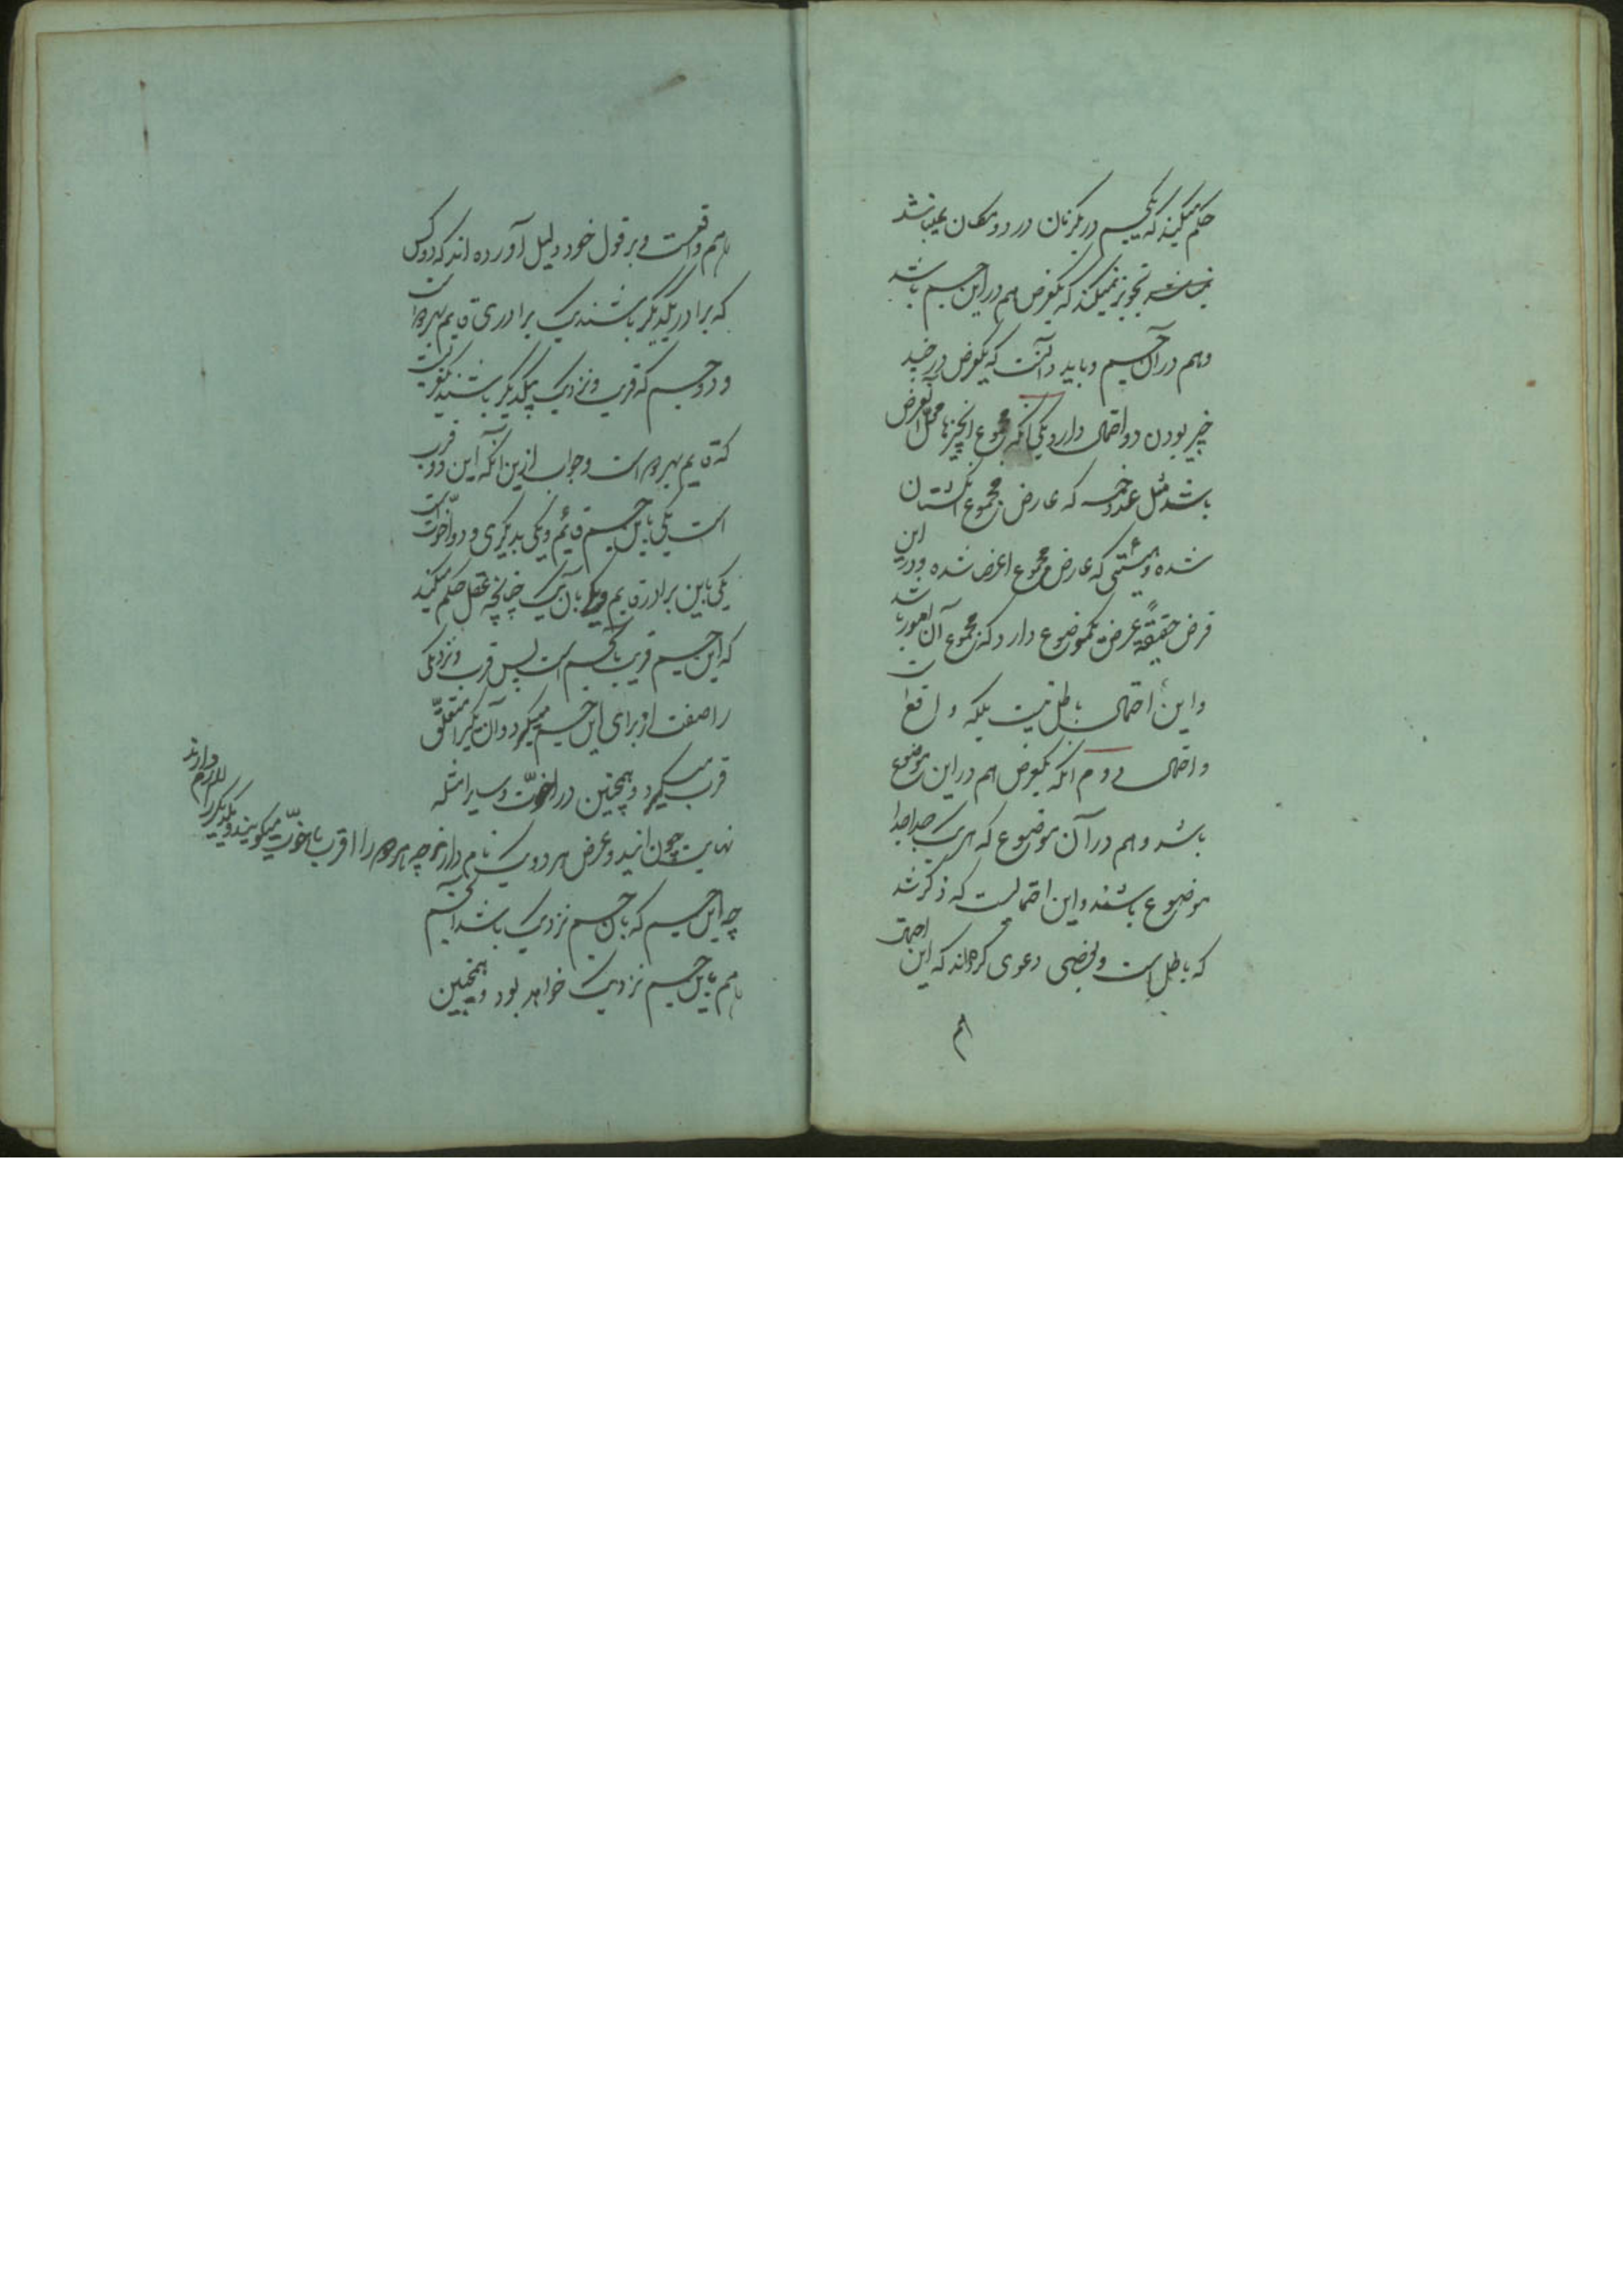 حکم میکند که یک جسم در یکزمان در دو مکان نمیباشد
تجویز نمیکند که یکعرض هم در این جسم باشد
و هم در آن جسم و باید دانست که یکعرض در چند
چیز بودن دو احتمال دارد یکی آنکه مجموع انچیزها محل آنعرض
باشد مثل عدد خمسه که عارض مجموع انگشتان
شده و هیئتی که عارض مجموع اعرض شده و درین
فرض حقیقةً عرض یکموضوع دارد که مجموع آن امور باشد
و این احتمال باطل نیست بلکه واقع است
و احتمال دوم انکه یکعرض هم در این موضوع
باشد و هم در آن موضوع که هریک جدا جدا
موضوع باشند و این احتمالست که ذکر شد
که باطل است و بعضی دعوی کرده‌اند که این احتمال
هم
هم واقعست و بر قول خود دلیل آورده اند که دو کس
که برادر یکدیگر باشند یک برادری قایم بهر دو است
و دو جسم که قریب و نزدیک بیکدیگر باشند یکقربت
که قایم بهر دو است و جواب ازین آنکه این دو قرب
است یکی باین جسم قائم و یکی بدیگری و دو اخوت است
یکی باین برادر قایم و یکی بآن یک چنانچه عقل حکم میکند
که این جسم قریب بآنجسم است پس قرب و نزدیکی
را صفت از برای این جسم میگیرد و آن دیگر را متعلق
قرب میگیرد و همچنین در اخوّت و سایر امثله
نهایت چون اند و عرض هر دو یک نام دارند چه هر دو را قرب یا اخوّت میگویند و یکدیگر را لازم دارند
چه این جسم که بآن جسم نزدیک باشد آنجسم
هم باین جسم نزدیک خواهد بود و همچنین